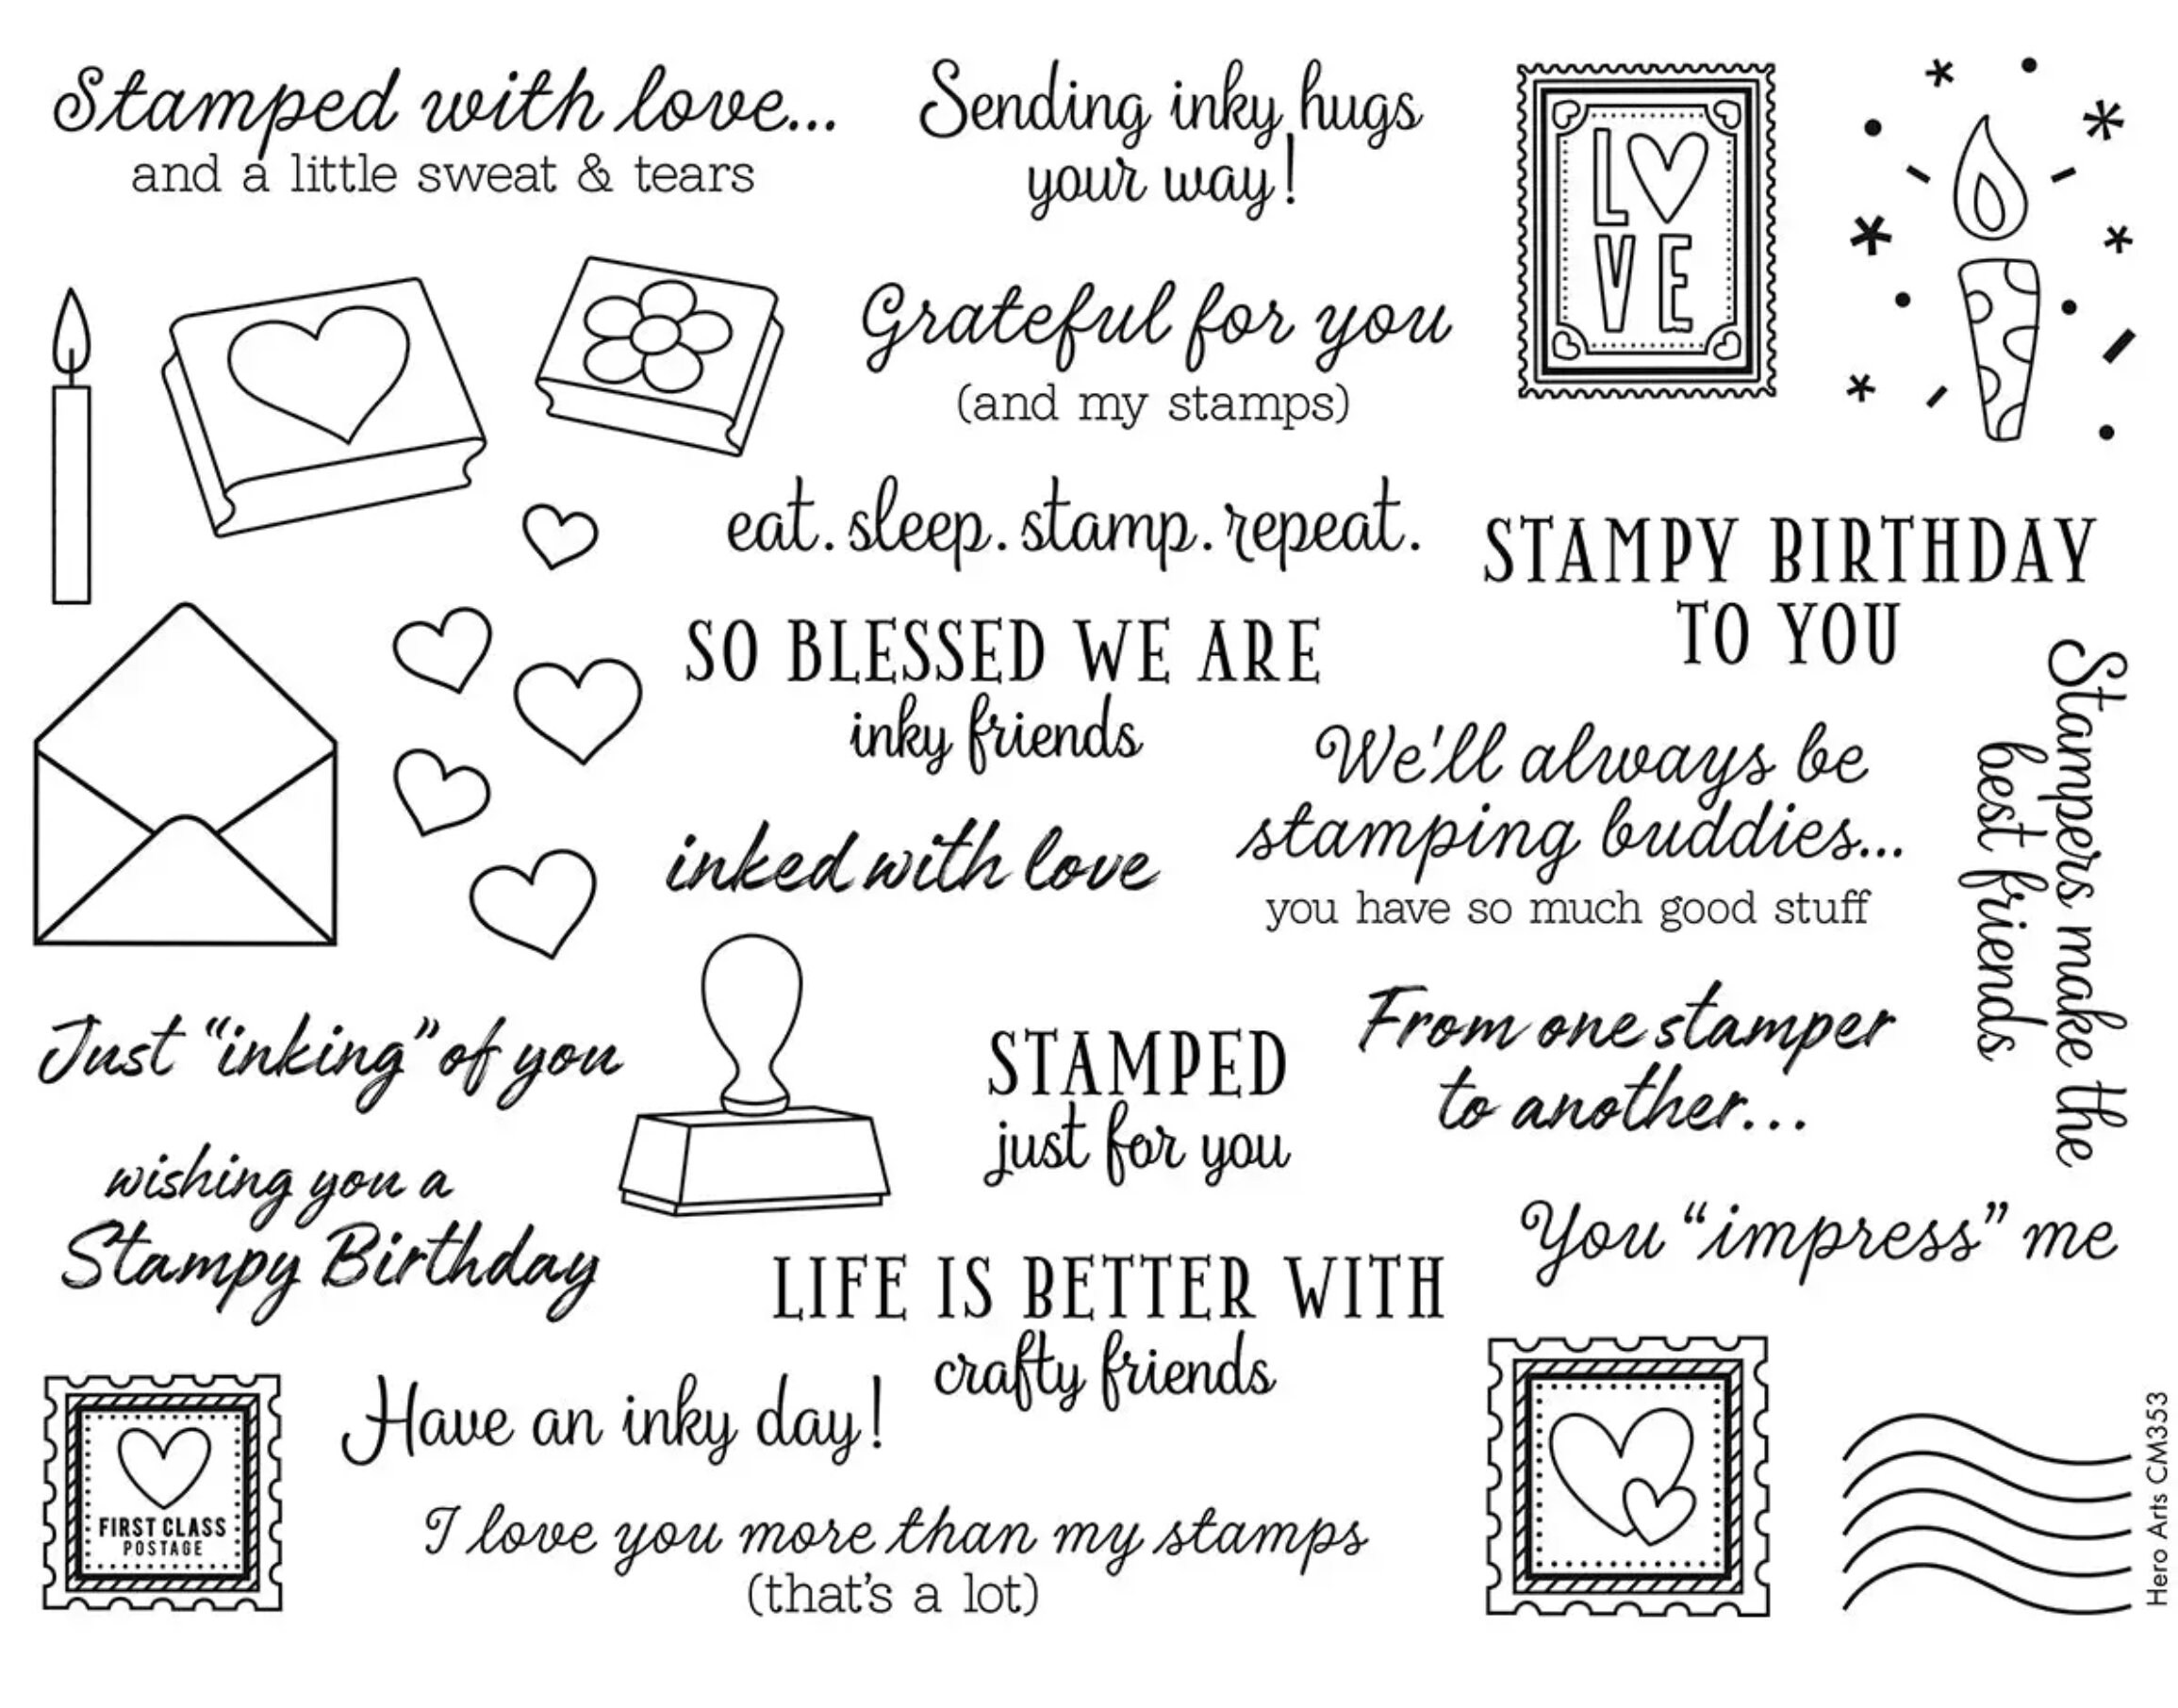 Stamped with love...
and a little sweat & tears
Sending inky hugs
your way!
LOVE
Grateful for you
(and my stamps)
eat. sleep. stamp. repeat.
STAMPY BIRTHDAY
TO YOU
SO BLESSED WE ARE
inky friends
We'll always be
stamping buddies...
you have so much good stuff
Stampers make the
best friends
inked with love
Just “inking” of you
STAMPED
just for you
From one stamper
to another...
wishing you a
Stampy Birthday
You “impress” me
LIFE IS BETTER WITH
crafty friends
Have an inky day!
FIRST CLASS
POSTAGE
I love you more than my stamps
(that's a lot)
Hero Arts CM353